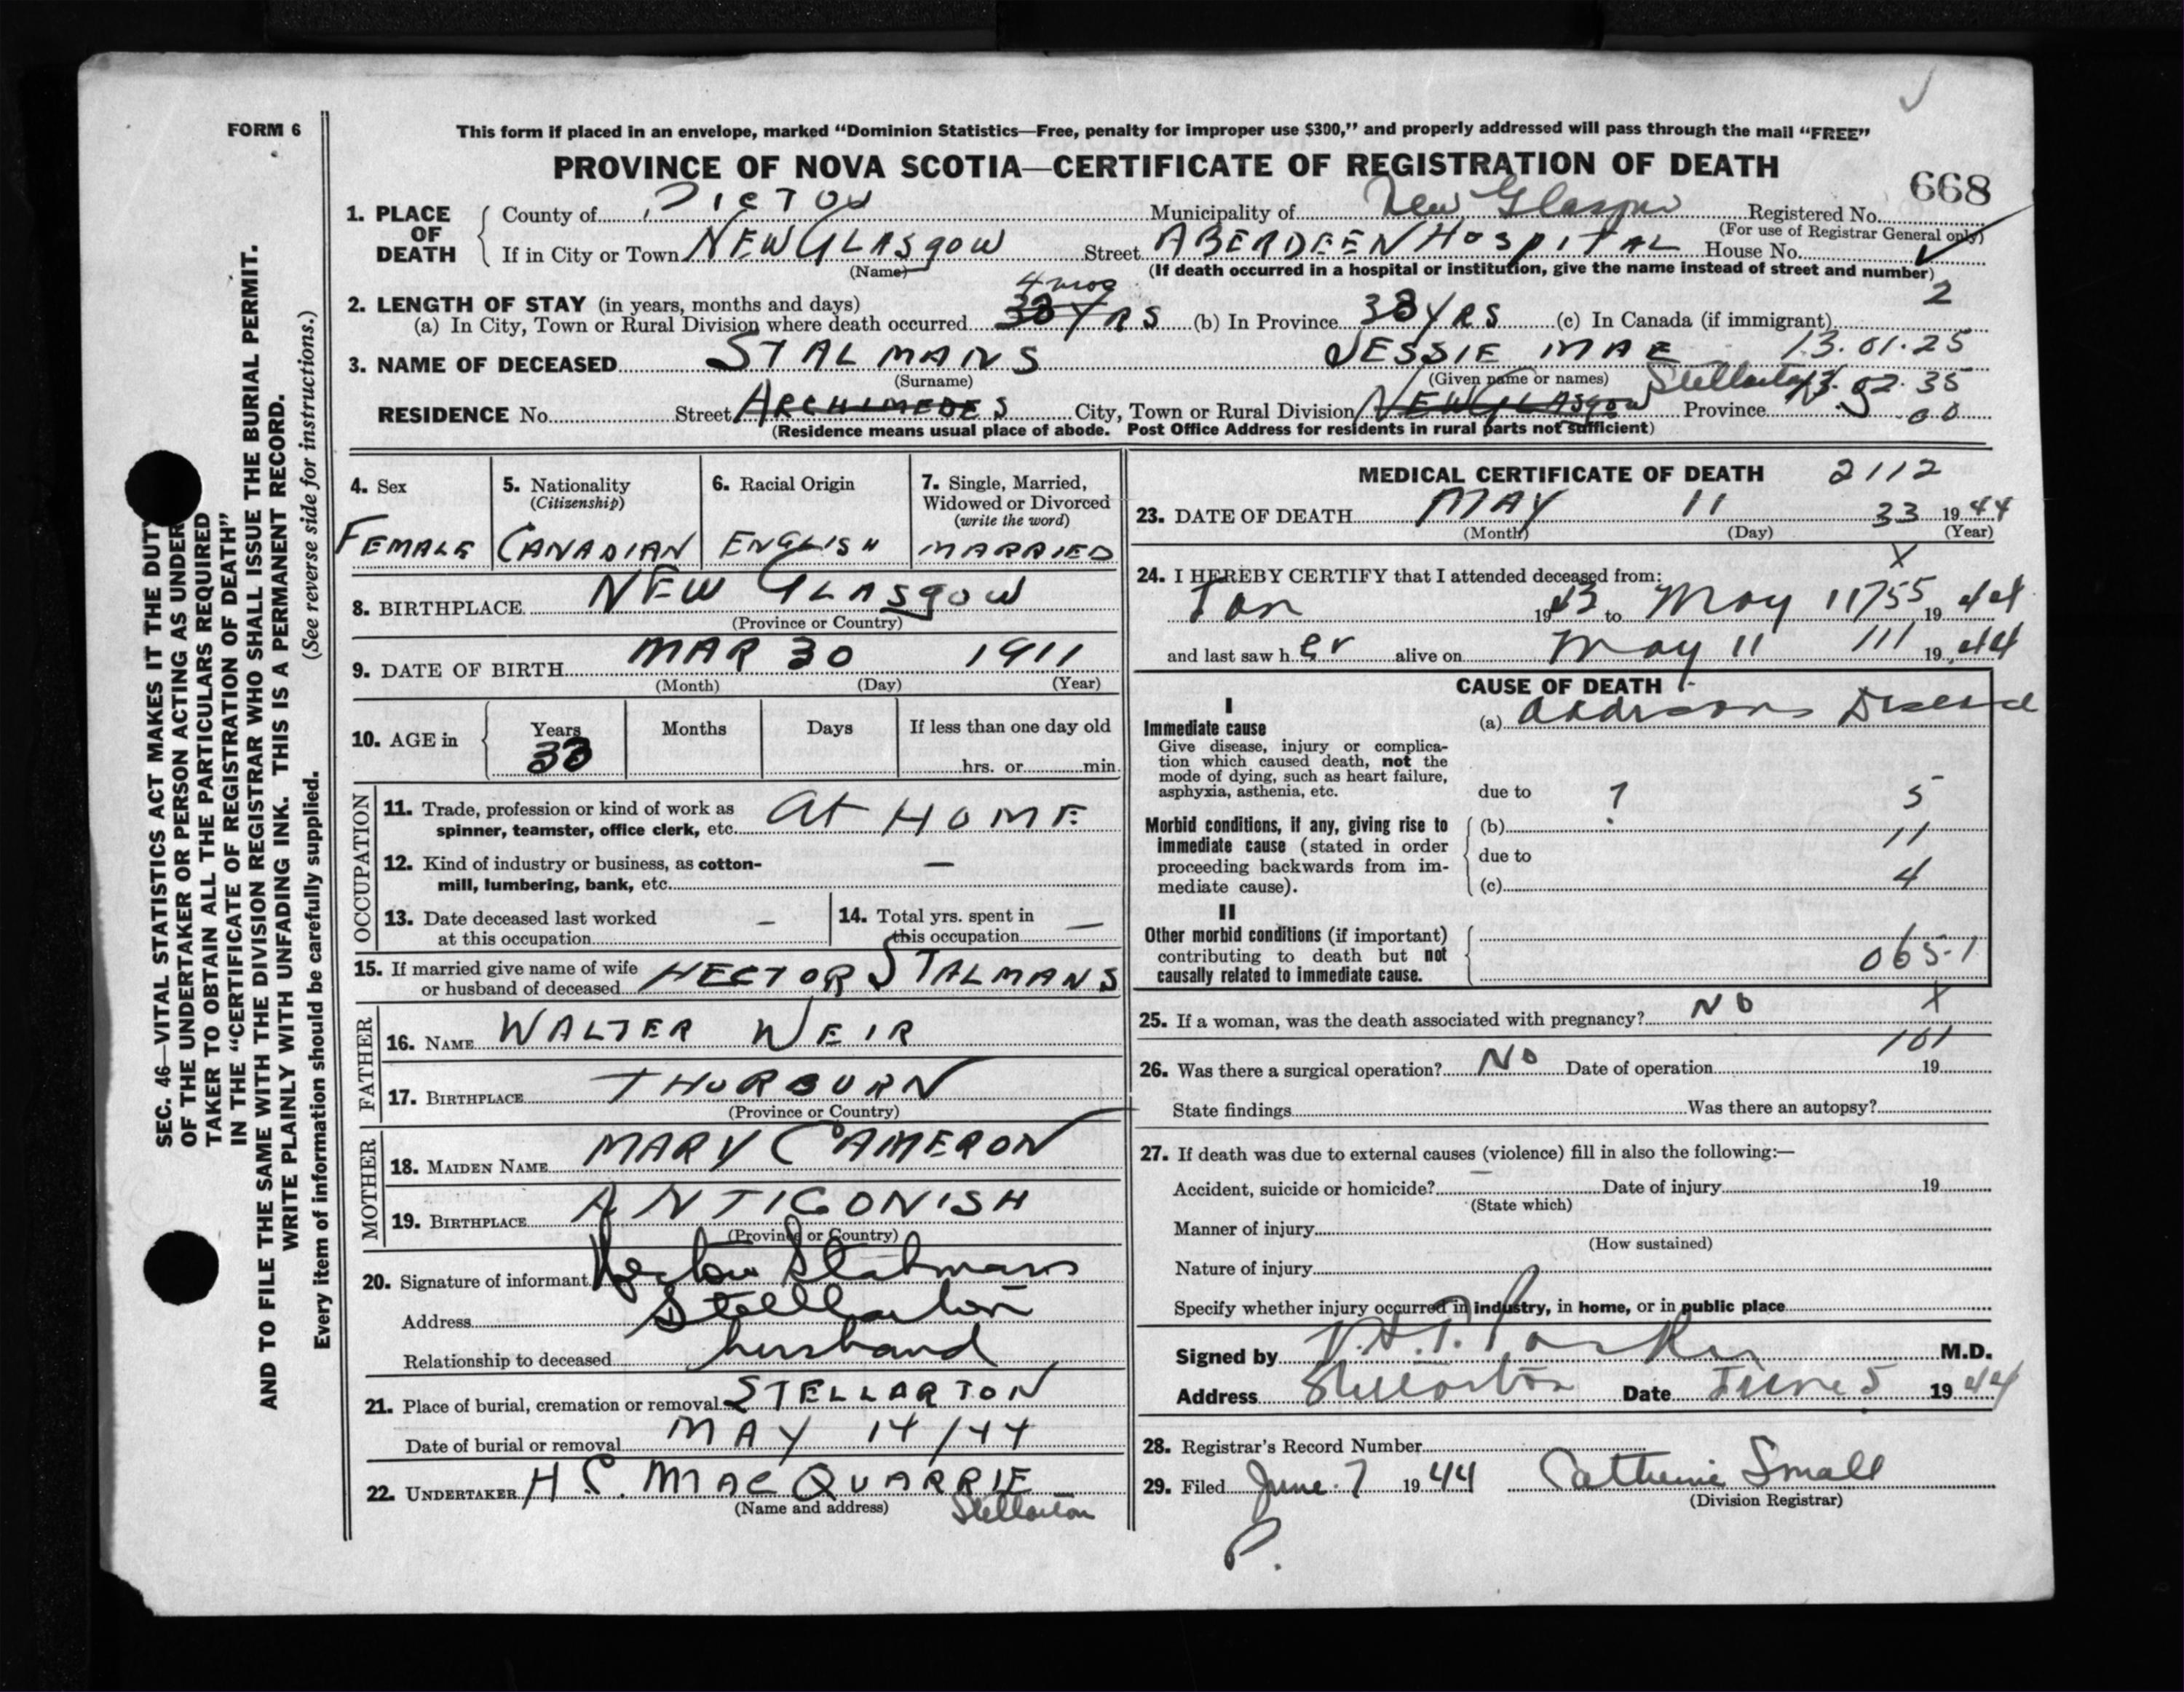 FORM 6
This form if placed in an envelope, marked “Dominion Statistics—Free, penalty for improper use $300,” and properly addressed will pass through the mail “FREE”
PROVINCE OF NOVA SCOTIA—CERTIFICATE OF REGISTRATION OF DEATH
668
1. PLACE OF DEATH County of PICTOU Municipality of New Glasgow Registered No.
(For use of Registrar General only)
If in City or Town NEW GLASGOW Street ABERDEEN HOSPITAL House No.
(Name) (If death occurred in a hospital or institution, give the name instead of street and number)
2. LENGTH OF STAY (in years, months and days) 4 mos 2
(a) In City, Town or Rural Division where death occurred 33 YRS (b) In Province 33 YRS (c) In Canada (if immigrant)
3. NAME OF DECEASED STALMANS JESSIE MAE 13.01.25
(Surname) (Given name or names) Stellarton 13.02.35
RESIDENCE No. Street ARCHIMEDES City, Town or Rural Division NEW GLASGOW Province 00
(Residence means usual place of abode. Post Office Address for residents in rural parts not sufficient)
SEC. 46—VITAL STATISTICS ACT MAKES IT THE DUTY
OF THE UNDERTAKER OR PERSON ACTING AS UNDER
TAKER TO OBTAIN ALL THE PARTICULARS REQUIRED
IN THE “CERTIFICATE OF REGISTRATION OF DEATH”
AND TO FILE THE SAME WITH THE DIVISION REGISTRAR WHO SHALL ISSUE THE BURIAL PERMIT.
WRITE PLAINLY WITH UNFADING INK. THIS IS A PERMANENT RECORD.
Every item of information should be carefully supplied. (See reverse side for instructions.)
4. Sex
FEMALE
5. Nationality
(Citizenship)
CANADIAN
6. Racial Origin
ENGLISH
7. Single, Married,
Widowed or Divorced
(write the word)
MARRIED
8. BIRTHPLACE NEW GLASGOW
(Province or Country)
9. DATE OF BIRTH MAR 30 1911
(Month) (Day) (Year)
10. AGE in Years Months Days If less than one day old
33 hrs. or min.
OCCUPATION
11. Trade, profession or kind of work as
spinner, teamster, office clerk, etc. At HOME
12. Kind of industry or business, as cotton-
mill, lumbering, bank, etc. —
13. Date deceased last worked
at this occupation —
14. Total yrs. spent in
this occupation —
15. If married give name of wife
or husband of deceased HECTOR STALMANS
FATHER
16. NAME WALTER WEIR
17. BIRTHPLACE THORBURN
(Province or Country)
MOTHER
18. MAIDEN NAME MARY CAMERON
19. BIRTHPLACE ANTIGONISH
(Province or Country)
20. Signature of informant Hector Stalmans
Address Stellarton
Relationship to deceased husband
21. Place of burial, cremation or removal STELLARTON
Date of burial or removal MAY 14/44
22. UNDERTAKER H S. MACQUARRIE
(Name and address) Stellarton
MEDICAL CERTIFICATE OF DEATH 2112
23. DATE OF DEATH MAY 11 33 1944
(Month) (Day) (Year)
X
24. I HEREBY CERTIFY that I attended deceased from:
Jan 1943 to May 11 755 19 44
and last saw h er alive on May 11 111 19 44
CAUSE OF DEATH
I
Immediate cause (a) Addisons Disease
Give disease, injury or complica-
tion which caused death, not the
mode of dying, such as heart failure,
asphyxia, asthenia, etc. due to ? 5
Morbid conditions, if any, giving rise to (b) 11
immediate cause (stated in order due to
proceeding backwards from im-
mediate cause). (c) 4
II
Other morbid conditions (if important)
contributing to death but not
causally related to immediate cause. 065.1
25. If a woman, was the death associated with pregnancy? NO X
101
26. Was there a surgical operation? No Date of operation 19
State findings Was there an autopsy?
27. If death was due to external causes (violence) fill in also the following:—
Accident, suicide or homicide? Date of injury 19
(State which)
Manner of injury
(How sustained)
Nature of injury
Specify whether injury occurred in industry, in home, or in public place
Signed by Parker M.D.
Address Stellarton Date June 5 19 44
28. Registrar's Record Number
29. Filed June 7 19 44 Catherine Small
(Division Registrar)
P.